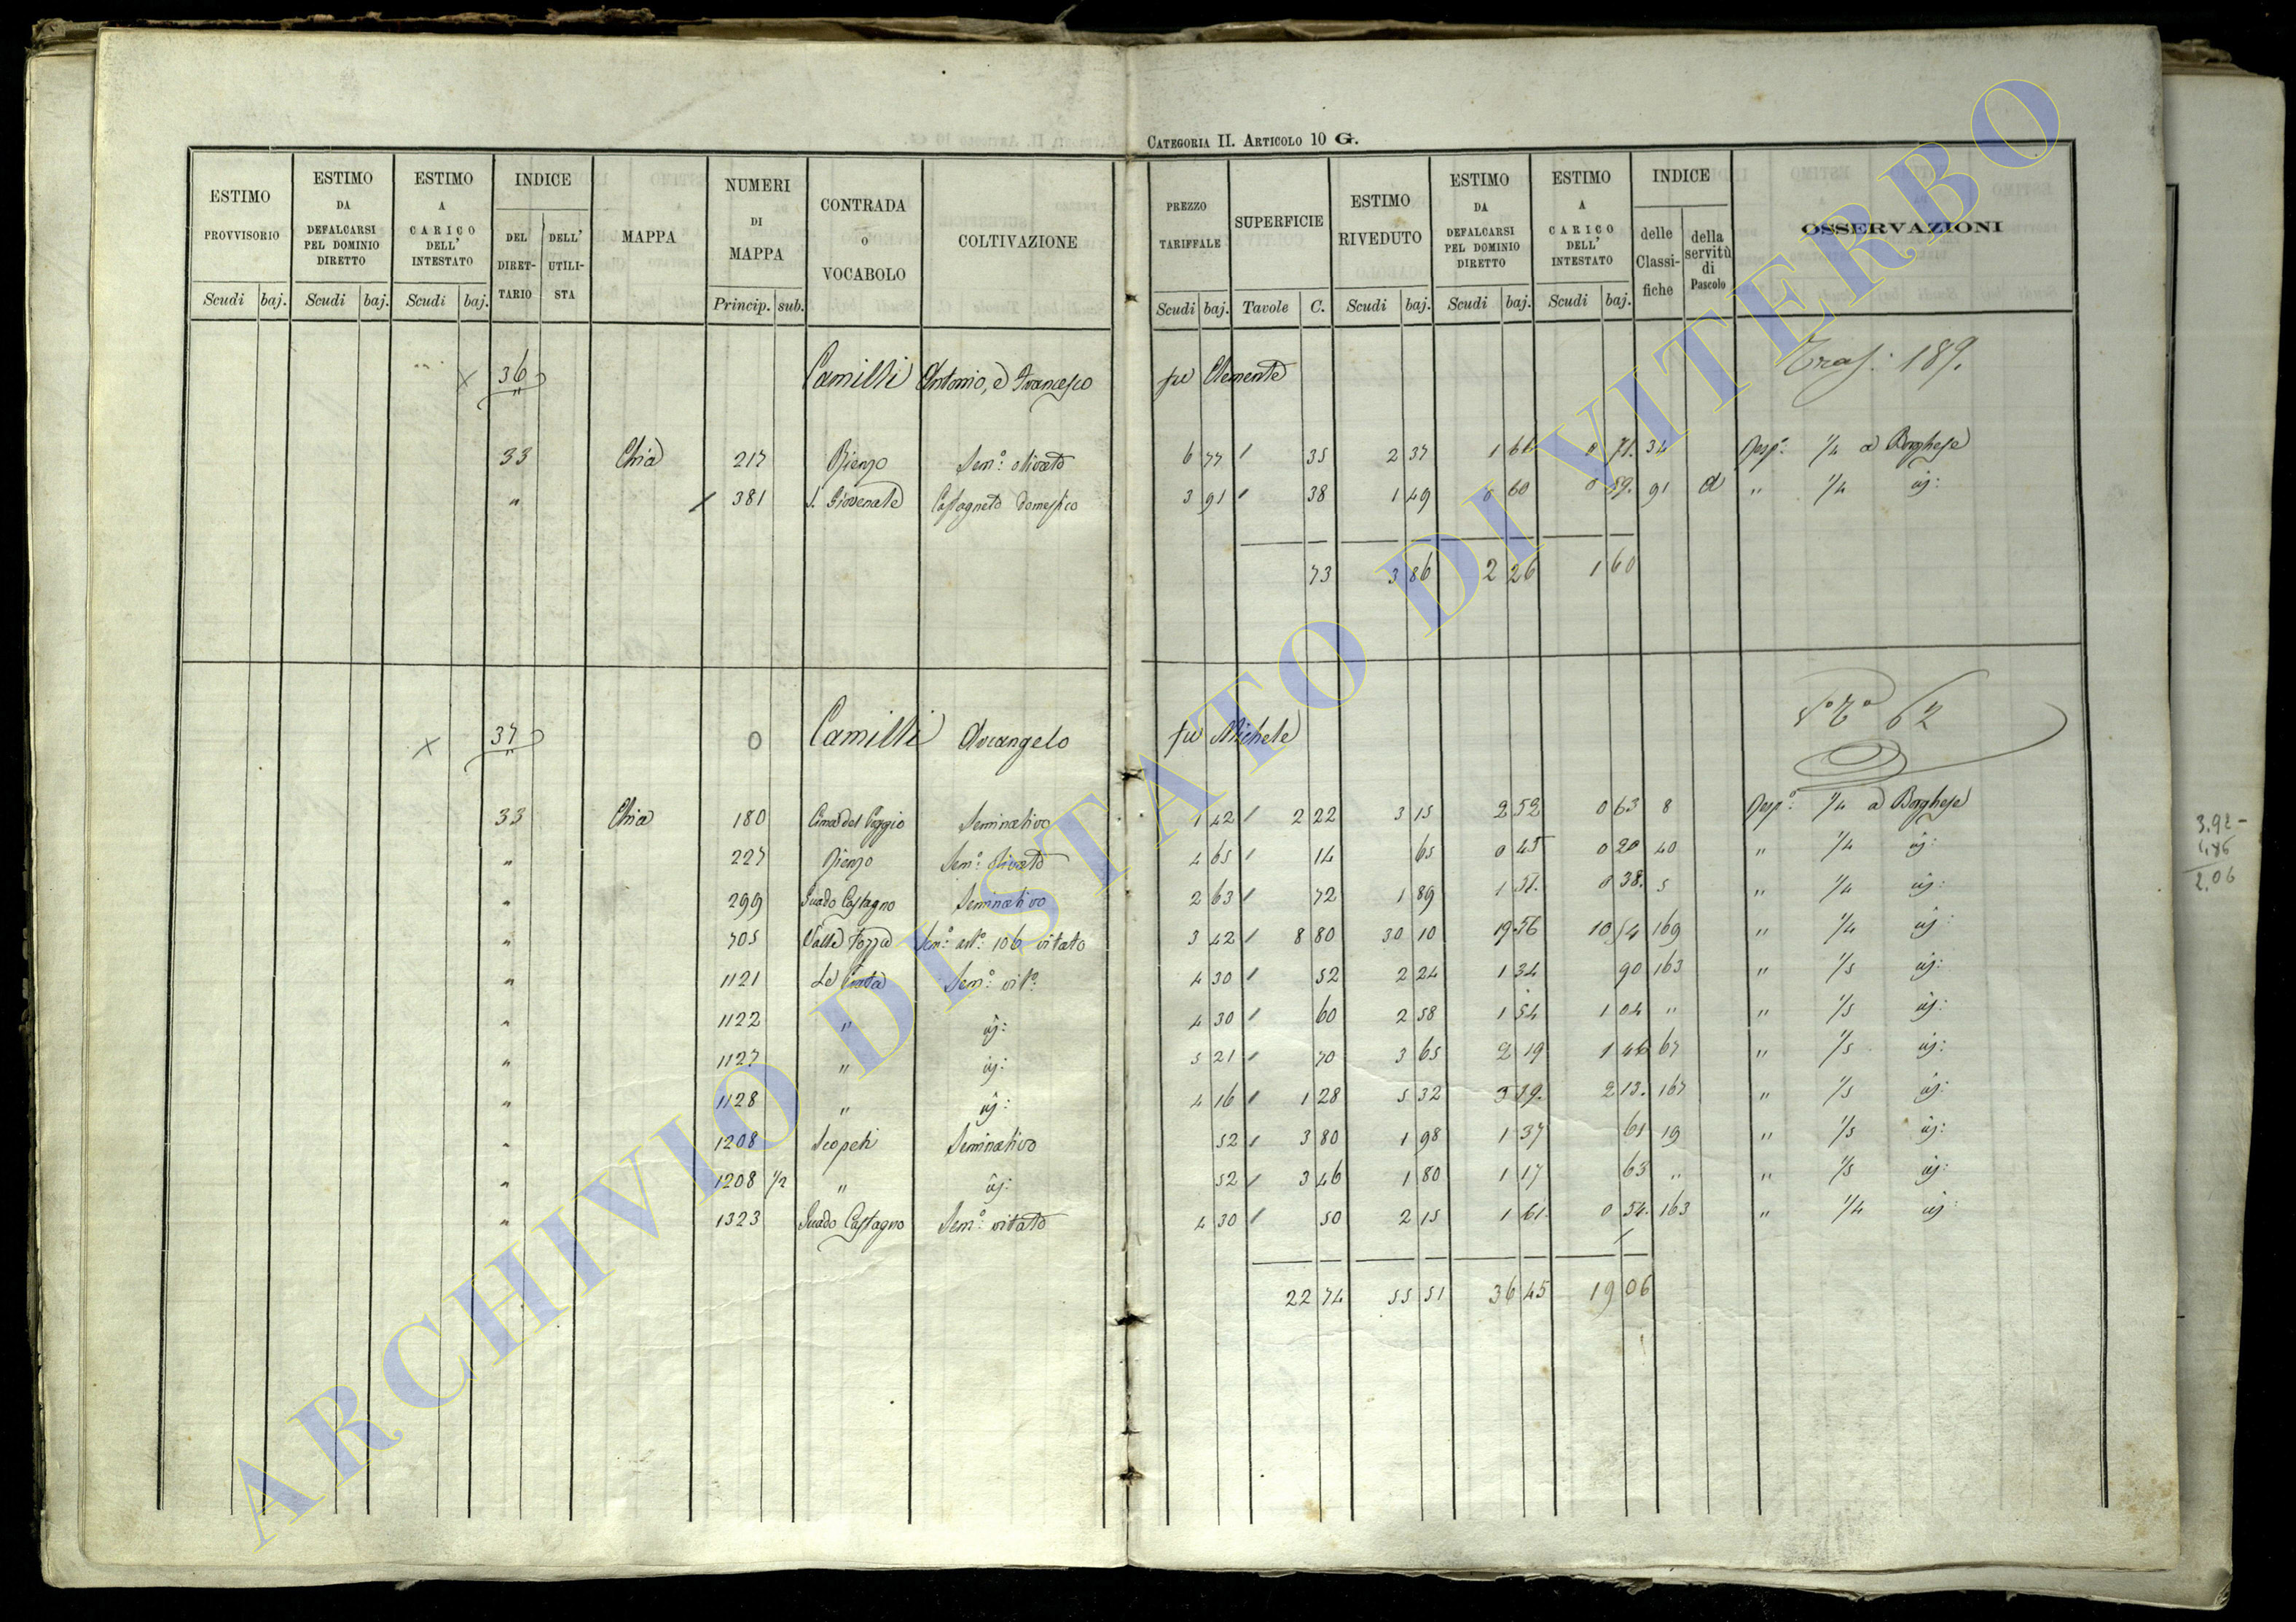 CATEGORIA II. ARTICOLO 10 G.
ESTIMO PROVVISORIO Scudi baj.
ESTIMO DA DEFALCARSI PEL DOMINIO DIRETTO Scudi baj.
ESTIMO A CARICO DELL' INTESTATO Scudi baj.
INDICE DEL DIRETTARIO DELL' UTILISTA
MAPPA
NUMERI DI MAPPA Princip. sub.
CONTRADA O VOCABOLO
COLTIVAZIONE
PREZZO TARIFFALE Scudi baj.
SUPERFICIE Tavole C.
ESTIMO RIVEDUTO Scudi baj.
ESTIMO DA DEFALCARSI PEL DOMINIO DIRETTO Scudi baj.
ESTIMO A CARICO DELL' INTESTATO Scudi baj.
INDICE delle Classifiche della servitù di Pascolo
OSSERVAZIONI
x 36 Camilli Antonio, e Francesco fu Clemente Tras: 189.
33 Chia 217 Rienzo Sem.º olivato 6 77 / 35 2 37 1 66 0 71. 34 Resp.ª 1/4 a Borghese
" / 381 S. Giovenale Castagneto domestico 3 91 / 38 1 49 0 60 0 89. 91 a " 1/4 id:
73 3 86 2 26 1 60
x 37 0 Camilli Arcangelo fu Michele 62
33 Chia 180 Cima del Poggio Seminativo 1 42 / 2 22 3 15 2 52 0 63 8 Resp.ª 1/4 a Borghese
" 227 Rienzo Sem.º olivato 4 65 / 14 65 0 45 0 20 40 " 1/4 id:
" 299 Guado Castagno Seminativo 2 63 / 72 1 89 1 51. 0 38. 5 " 1/4 id:
" 705 Valle Fozza Sem.º art.º 106 vitato 3 42 / 8 80 30 10 19 56 10 54 169 " 1/4 id
" 1121 Le Prata Sem.º vit.º 4 30 / 52 2 24 1 34 90 163 " 1/5 id:
" 1122 " id: 4 30 / 60 2 58 1 54 1 04 " " 1/5 id:
" 1127 " id: 5 21 / 70 3 65 2 19 1 46 67 " 1/5 id:
" 1128 " id: 4 16 / 1 28 5 32 3 19. 2 13. 167 " 1/5 id:
" 1208 Scopeti Seminativo 52 / 3 80 1 98 1 37 61 19 " 1/5 id:
" 1208 1/2 " id: 52 / 3 46 1 80 1 17 63 " " 1/5 id:
" 1323 Guado Castagno Sem.º vitato 4 30 / 50 2 15 1 61. 0 54. 163 " 1/4 id:
22 74 55 51 36 45 19 06
3.92 -
1,86
2.06
ARCHIVIO DI STATO DI VITERBO